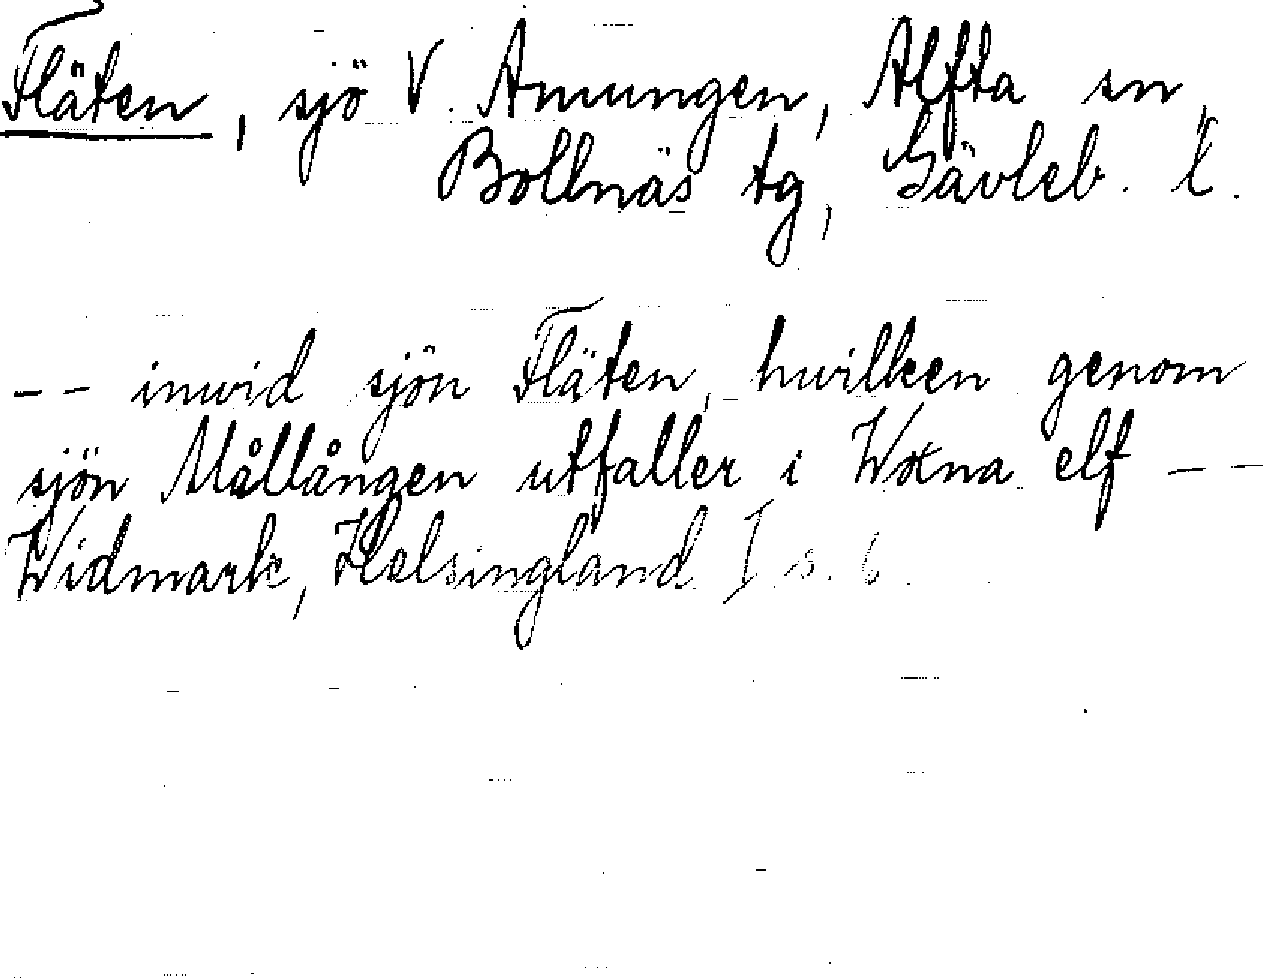 Fläten, sjö V. Amungen, Alfta sn,
Bollnäs tg, Gävleb. l.
-- inwid sjön Fläten, hwilken genom
sjön Mållången utfaller i Woxna elf --
Widmark, Helsingland I s. 6.